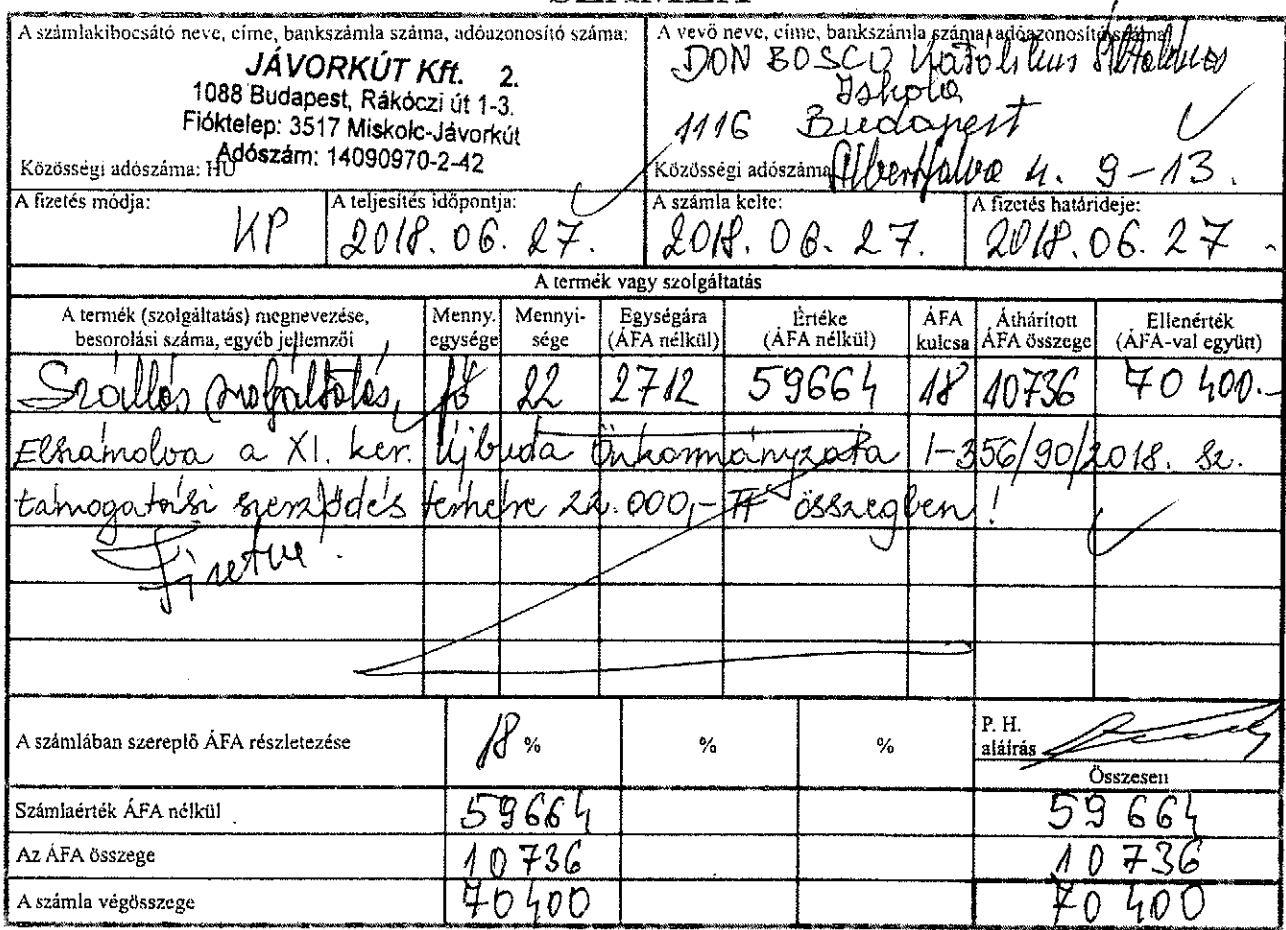 A számlakibocsátó neve, címe, bankszámla száma, adóazonosító száma:
JÁVORKÚT Kft. 2.
1088 Budapest, Rákóczi út 1-3.
Fióktelep: 3517 Miskolc-Jávorkút
Adószám: 14090970-2-42
Közösségi adószáma: HU
A vevő neve, címe, bankszámla száma, adóazonosító száma:
DON BOSCO Katolikus Általános
Iskola
1116 Budapest
Közösségi adószáma
Albertfalva u. 9-13.
A fizetés módja: A teljesítés időpontja: A számla kelte: A fizetés határideje:
KP 2018. 06. 27. 2018. 06. 27. 2018. 06. 27
A termék vagy szolgáltatás
A termék (szolgáltatás) megnevezése, besorolási száma, egyéb jellemzői Menny. egysége Mennyi-sége Egységára (ÁFA nélkül) Értéke (ÁFA nélkül) ÁFA kulcsa Áthárított ÁFA összege Ellenérték (ÁFA-val együtt)
Szállás szolgáltatás, fő 22 2712 59664 18 10736 70 400.-
Elszámolva a XI. ker. Újbuda Önkormányzata 1-356/90/2018. sz.
támogatási szerződés terhére 22.000,- Ft összegben!
Fizetve.
A számlában szereplő ÁFA részletezése 18 % % % P. H. aláírás
Összesen
Számlaérték ÁFA nélkül 59664 59 664
Az ÁFA összege 10736 10 736
A számla végösszege 70400 70 400